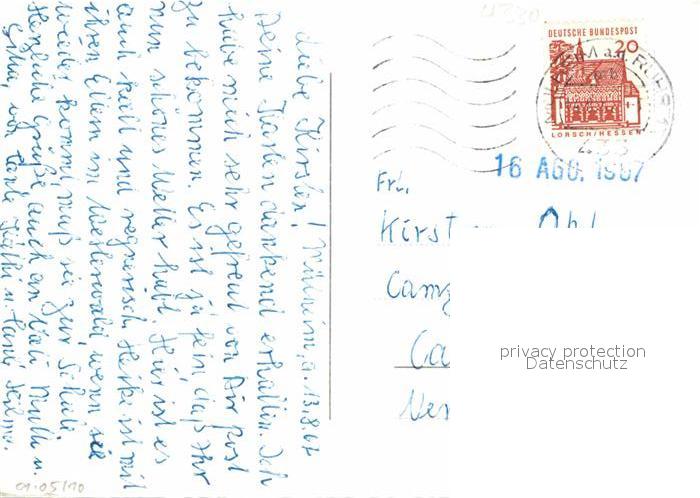 Liebe Kirsten! Mülheim, d. 13.8.67
Deine Karten dankend erhalten. Ich
habe mich sehr gefreut von Dir Post
zu bekommen. Es ist ja fein, daß Ihr
nun schönes Wetter habt. Hier ist es
auch kalt und regnerisch. Heike ist mit
ihren Eltern im Westerwald, wenn sie
wieder kommt, muß sie zur Schule
Herzliche Grüße auch an Vati Mutti u.
von Tante Käthi u.
DEUTSCHE BUNDESPOST
20
LORSCH/HESSEN
433
16 AGO. 1967
4330
Frl.
Kirst
Ca
privacy protection
Datenschutz
01.05/10